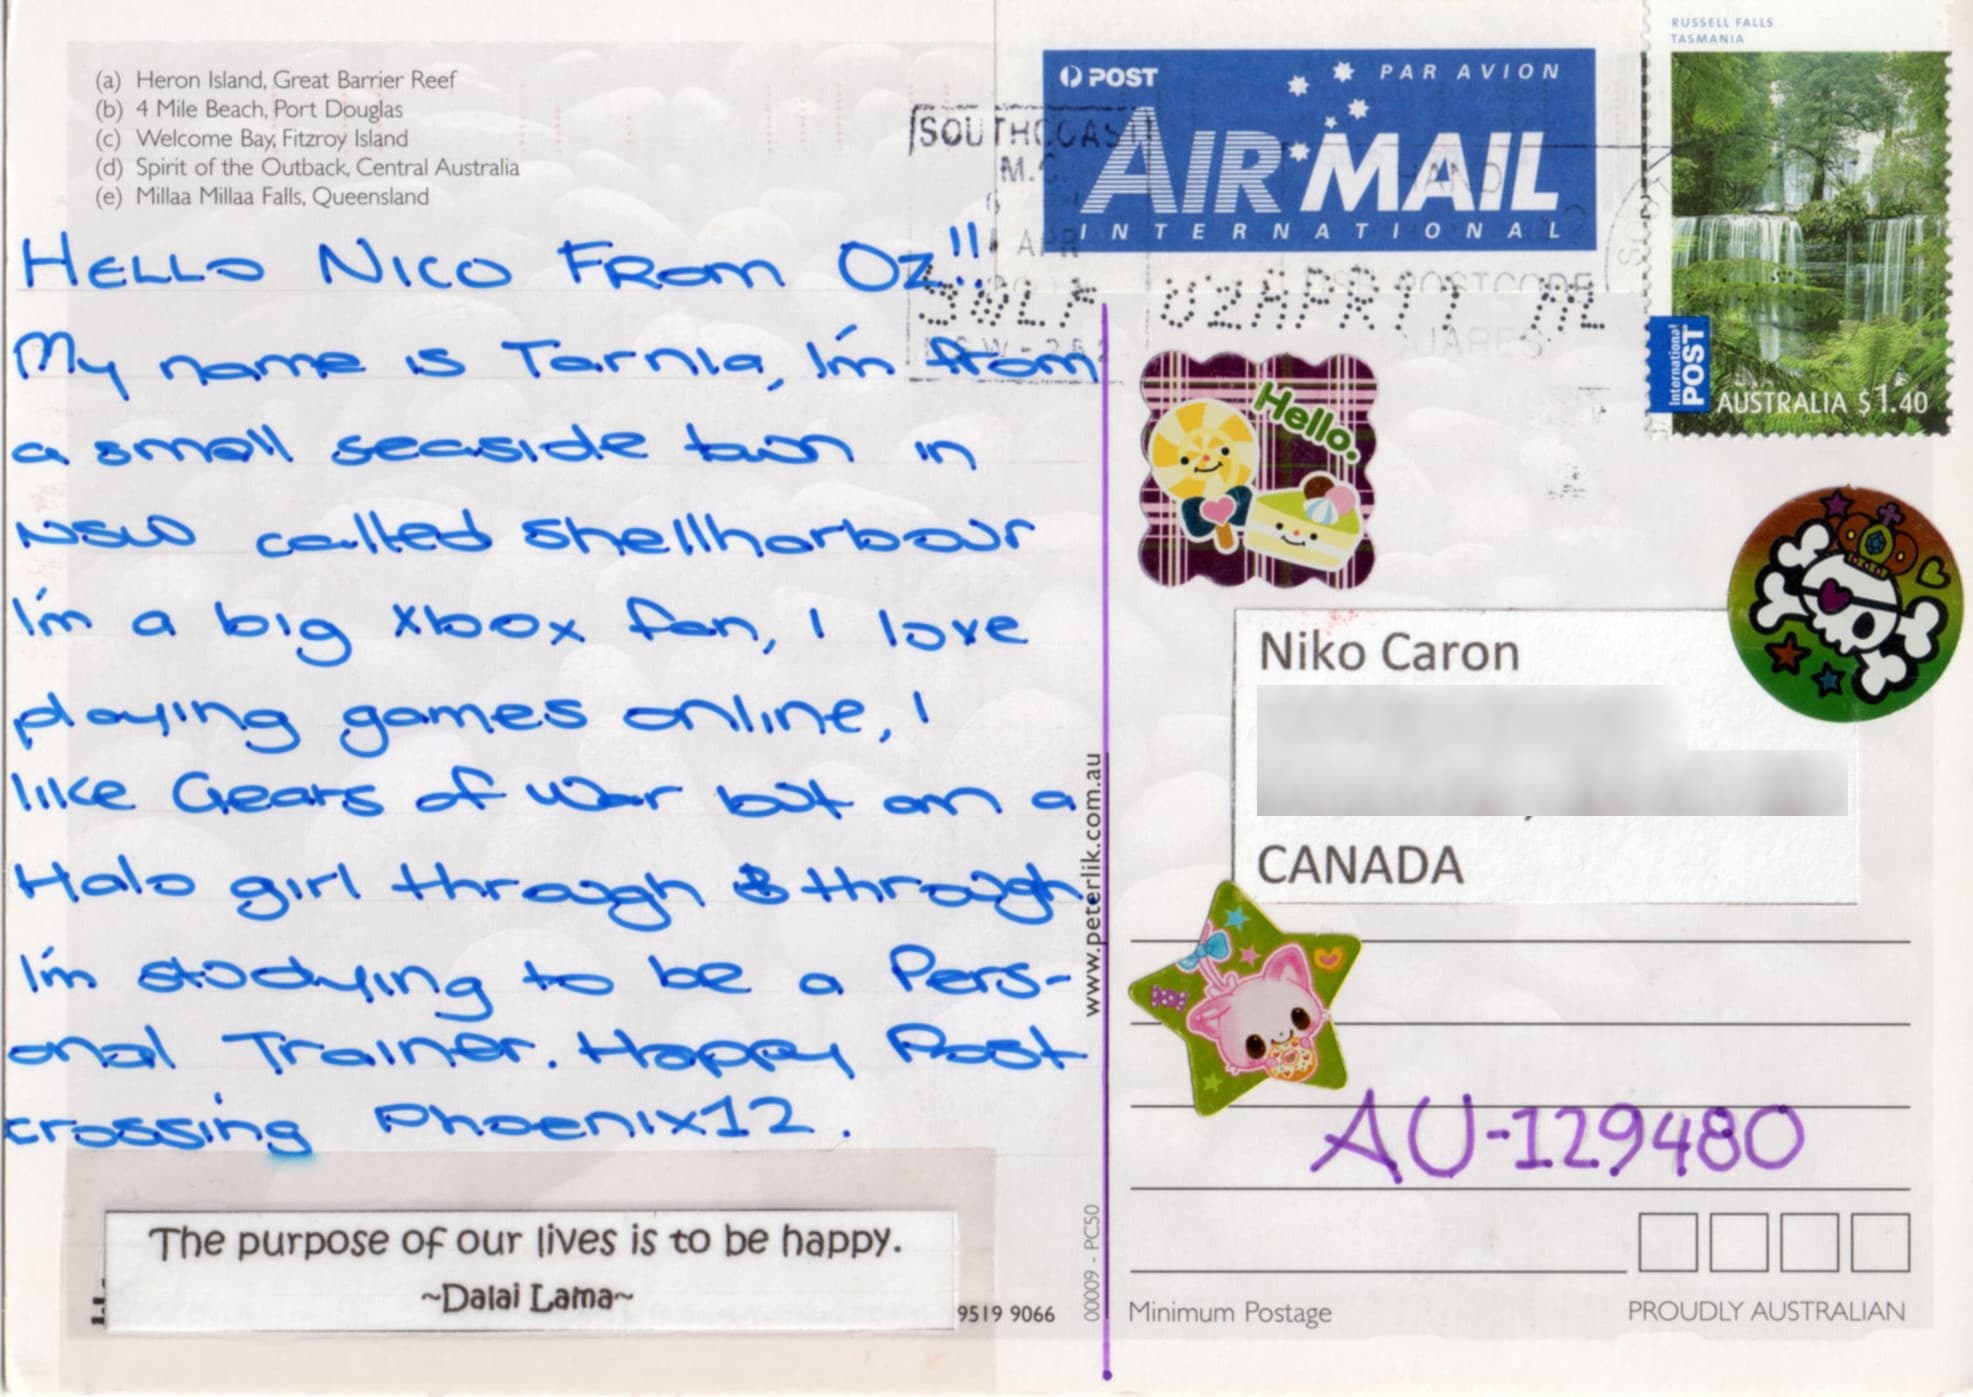 (a) Heron Island, Great Barrier Reef
(b) 4 Mile Beach, Port Douglas
(c) Welcome Bay, Fitzroy Island
(d) Spirit of the Outback, Central Australia
(e) Millaa Millaa Falls, Queensland
HELLO NICO FROM OZ!!
My name is Tarnia, I'm from
a small seaside town in
NSW called Shellharbour
I'm a big Xbox fan, I love
playing games online, I
like Gears of War but am a
Halo girl through & through
I'm studying to be a Pers-
onal Trainer. Happy Post
crossing Phoenix12.
The purpose of our lives is to be happy.
~Dalai Lama~
9519 9066
00009 - PC50
www.peterlik.com.au
POST
PAR AVION
AIR MAIL
INTERNATIONAL
SOUTH COAST
M.C.
APR
RUSSELL FALLS
TASMANIA
International
POST
AUSTRALIA $1.40
Hello.
Niko Caron
CANADA
AU-129480
Minimum Postage
PROUDLY AUSTRALIAN